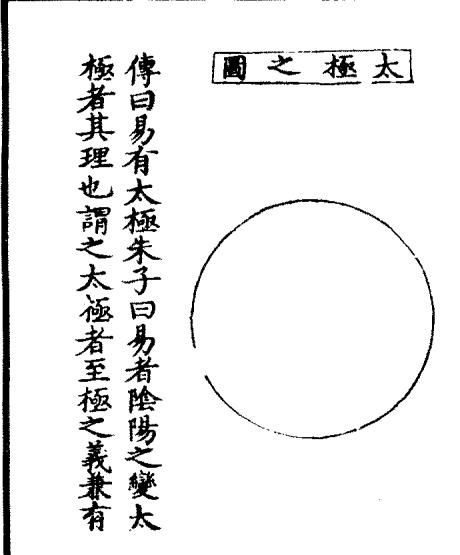 太極之圖
傳曰易有太極朱子曰易者陰陽之變太
極者其理也謂之太極者至極之義兼有